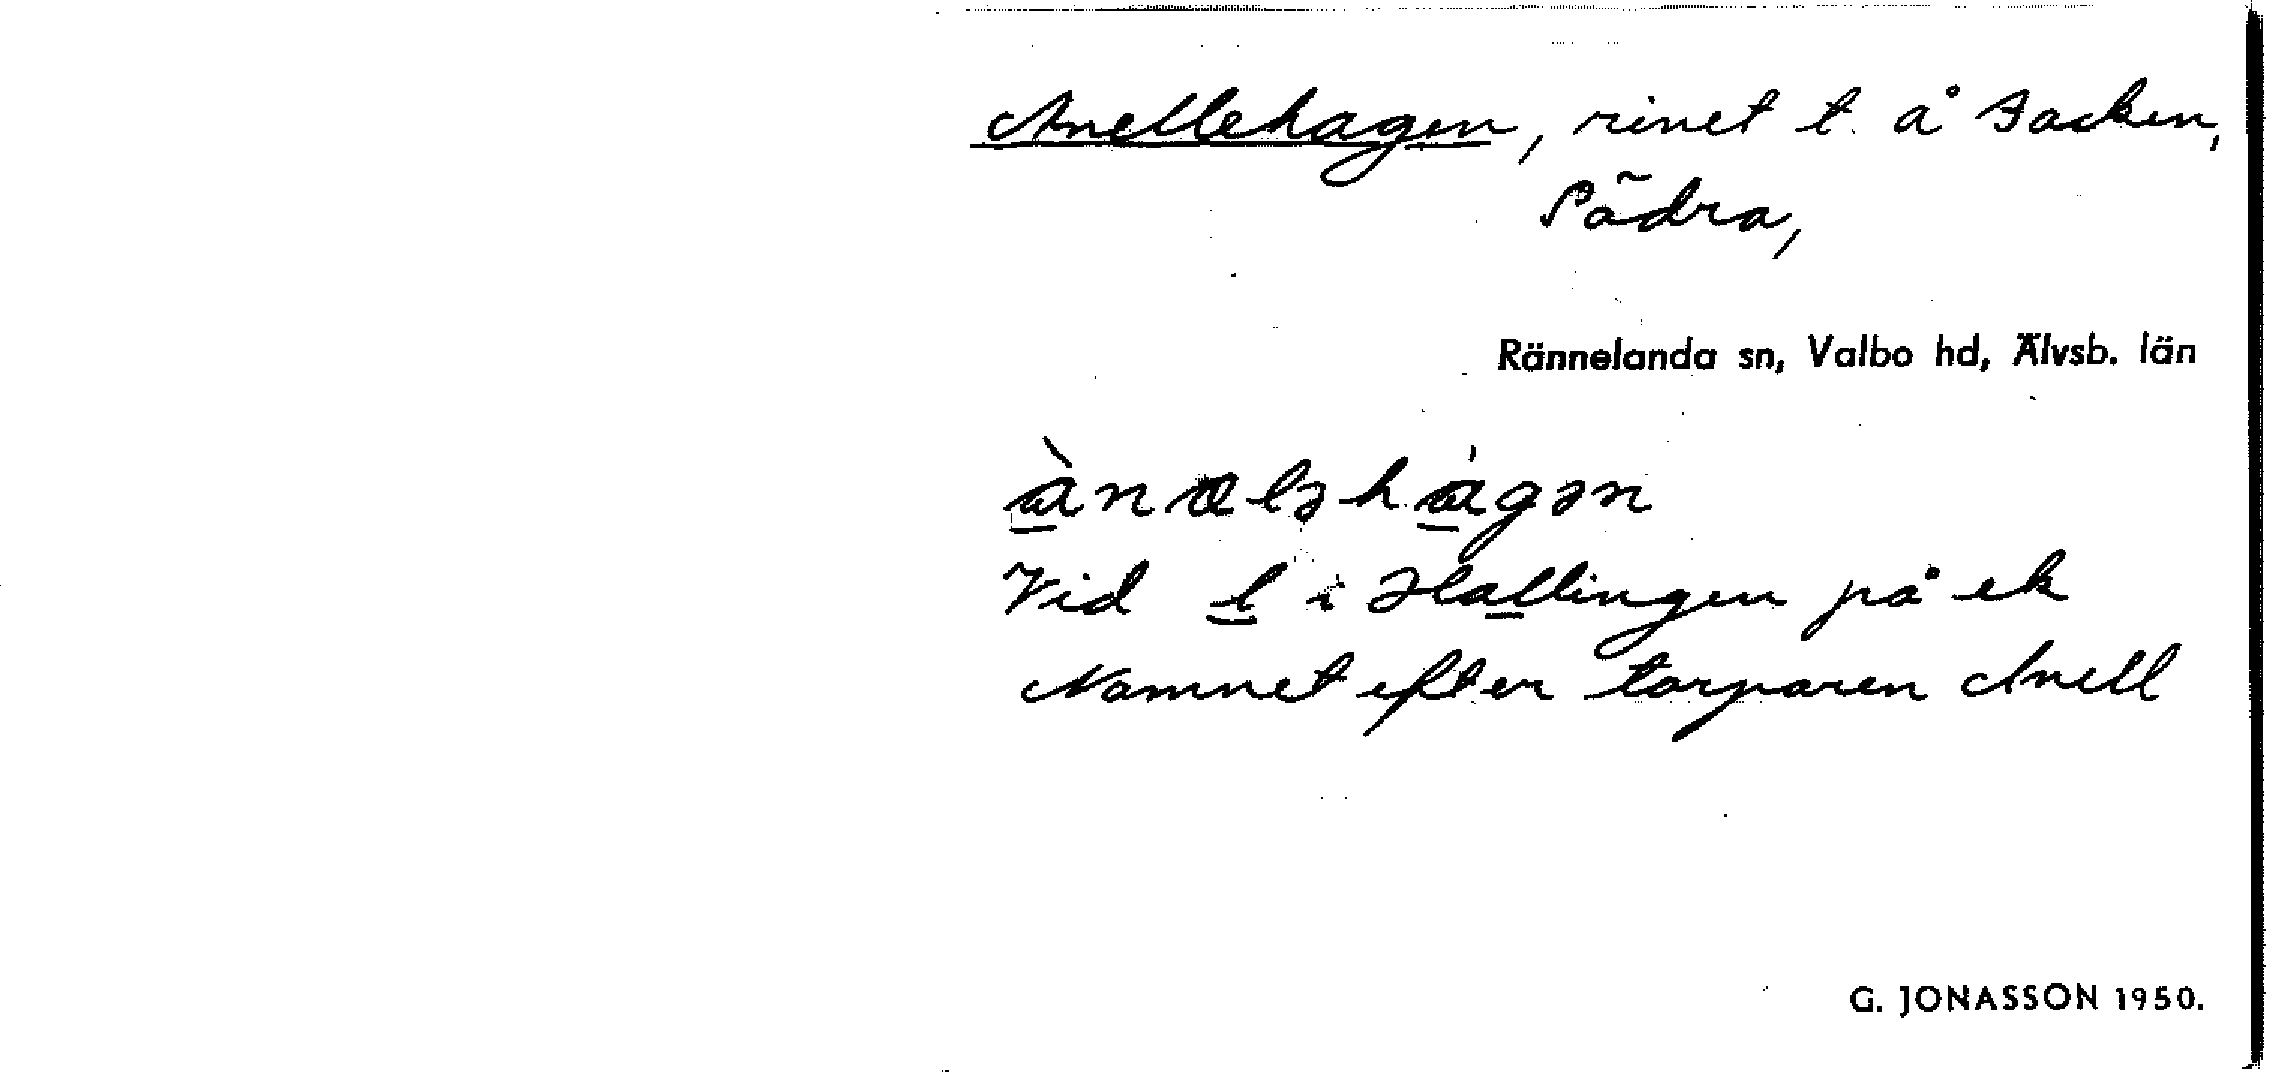 Anellehagen, rivet t. å Backen,
Södra,
Rännelanda sn, Valbo hd, Älvsb. län
ànæləhágən
Vid l i Hallingen på ek
Namnet efter torparen Anell
G. JONASSON 1950.